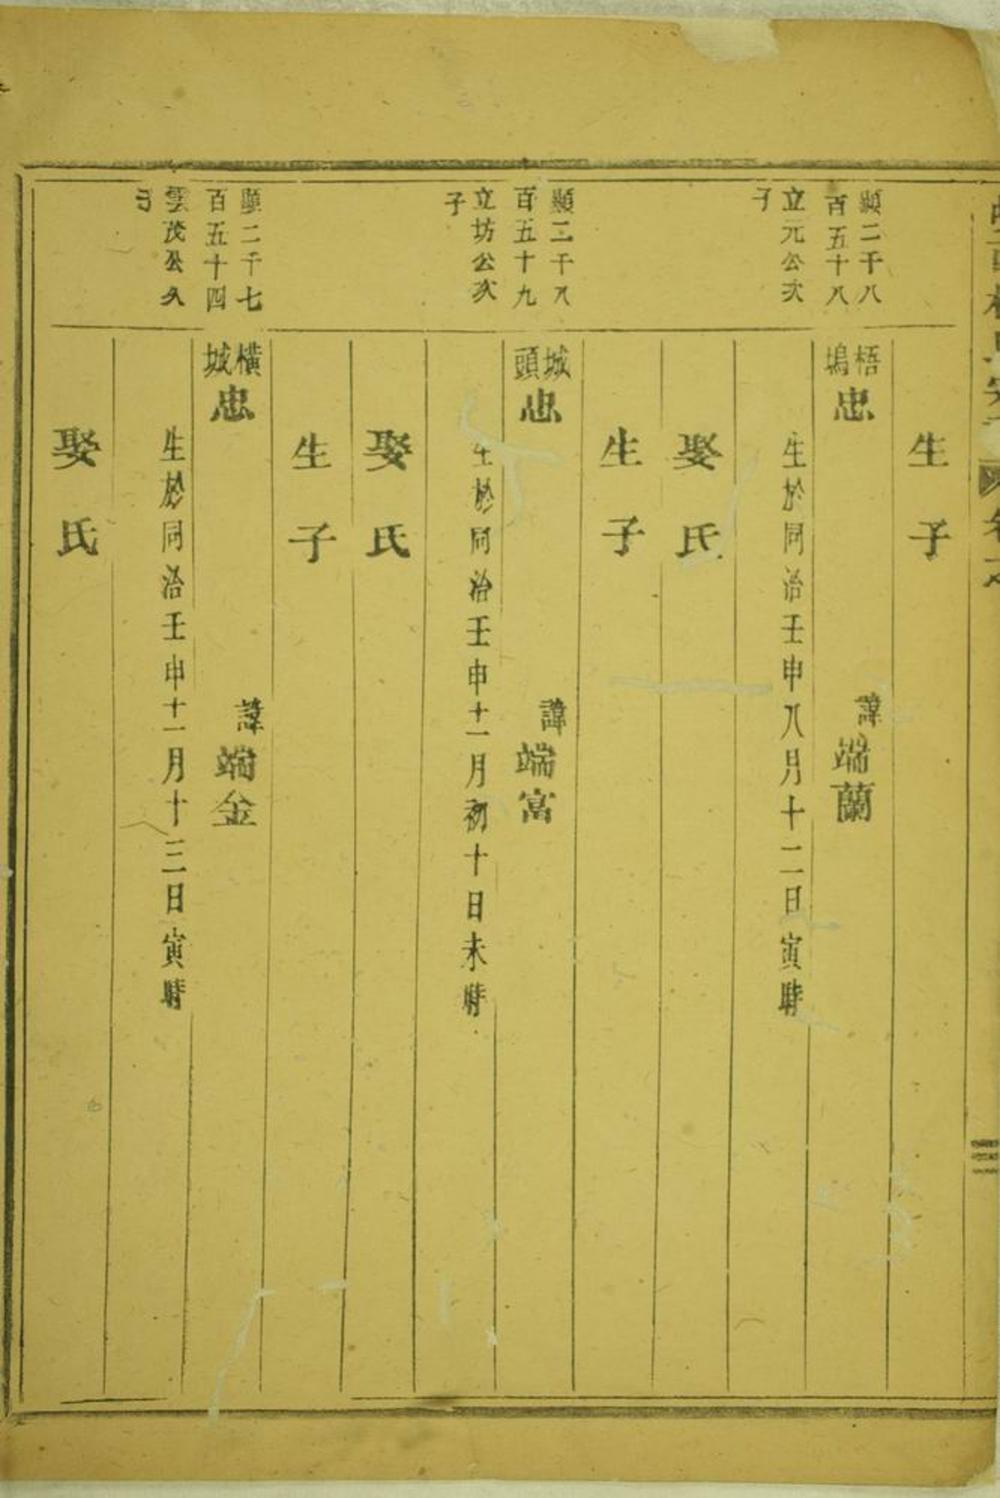 生子
顯二千八
百五十八
立元公次
子
梧
塢
忠
諱端蘭
生於同治壬申八月十二日寅時
娶氏
生子
顯二千八
百五十九
立坊公次
子
城
頭
忠
諱端富
生於同治壬申十一月初十日未時
娶氏
生子
顯二千七
百五十四
雲茂公久
子
橫
城
忠
諱端金
生於同治壬申十一月十三日寅時
娶氏